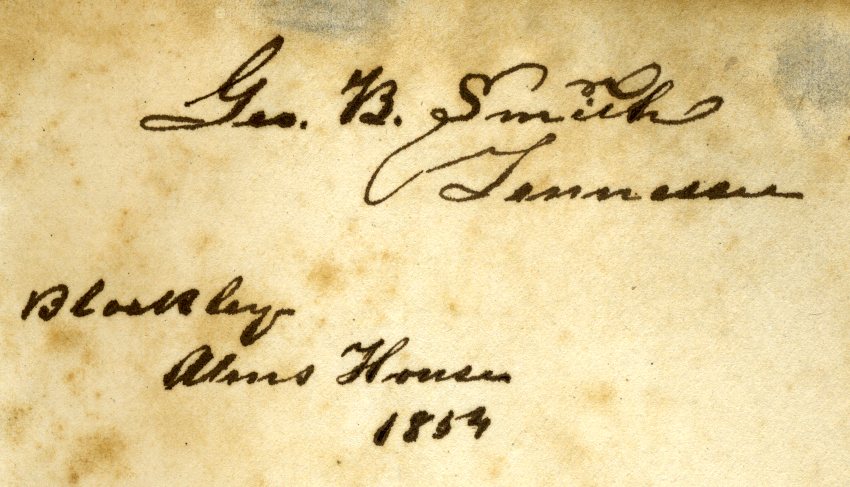 Geo. B. Smith
Tennessee
Blockley
Alms House
1854